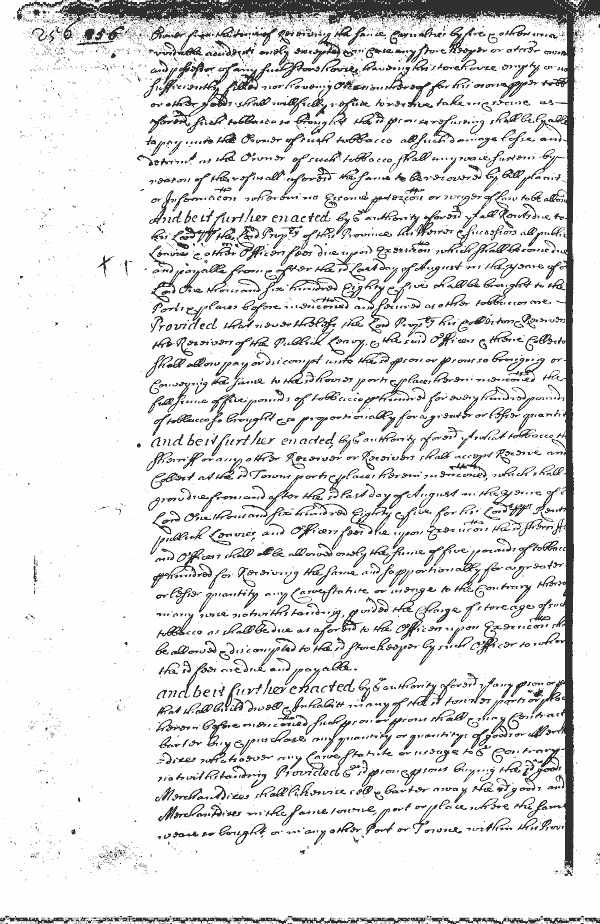 256 256
Owner from the time of Receiving the same Casualties by fire & other una-
voydable accidents onely excepted can Case any store Keeper or other owner
and possessor of any such storehouse haveing his storehouse empty or not
sufficiently filled nor haveing Occasion thereof for his owne pper tobb
or other goods shall willfully refuse to receive take in secure as-
aforesd such tobbacco so brought the sd pson so refusing shall be lyable
to pay unto the Owner of such tobbacco all such damage losse and
detrimt as the Owner of such tobbacco shall any wise sustein by
reason of the refusall aforesd the same to be recovered by bill plaint
or Informacon wherein no Essoine protecon or wager of Law to be allowed
And be it further enacted by ye authority aforesd yt all Rents due to
his Lordpp the Lord Propry of this Province his heires & successors all publick
Leavies & other Officers fees due upon Execucon which shall become due
and payable from & after the sd last day of August in the yeare of or
Lord One thousand six hundred Eighty & five shall be brought to the
Ports & places before menconed and seized as other tobbaccos are
Provided that neverthelesse the Lord Propry his Collectors Receivers
the Receivers of the Publick Leavy & the said Officers & there Collectors
shall allow pay or discompt unto the sd pson or psons so bringing or
Conveying the same to the sd houses ports & places herein menconed the
full summe of five pounds of tobbacco p hundred for every hundred pounds
of tobbacco so brought & so proportionally for a greater or lesser quantity
And be it further enacted by ye authority aforesd yt what tobbacco the
Sherriff or any other Receiver or Receivers shall accept Receive and
Collect at the sd Towns ports & places herein menconed, which shall
grow due from and after the sd last day of August in the yeare of or
Lord One thousand six hundred Eighty & five for his Lordpps Rents
publick Leavies, and Officers fees due upon Execucon the sd Sherriffs
and Officers shall be allowed onely the summe of five pounds of tobbacco
p hundred for Receiving the same and so pportionally for a greater
or lesser quantity any Law Statute or usage to the Contrary thereof
in any wise notwithstanding, pvided the Charge of storeage of such
tobbacco as shall be due as aforesd to the Officer upon Execucon shall
be allowed & discompted to the sd storekeeper by such Officer to whom
the sd fees are due and payable.
And be it further enacted by ye authority aforesd yt any pson or psons
that shall build dwell & Inhabitt in any of the sd townes ports or places
herein before menconed such pson or psons shall & may Contract
barter buy & purchase any quantity or quantityes of goods or Merch
-dizes whatsoever any Law Statute or usage to ye Contrary
notwithstanding Provided ye sd pson & psons buying the sd goods
Merchandizes shall likewise sell & barter away the sd goods and
Merchandizes in the same towne, port or place where the same
weare so bought, or in any other Port or Towne within this Provi